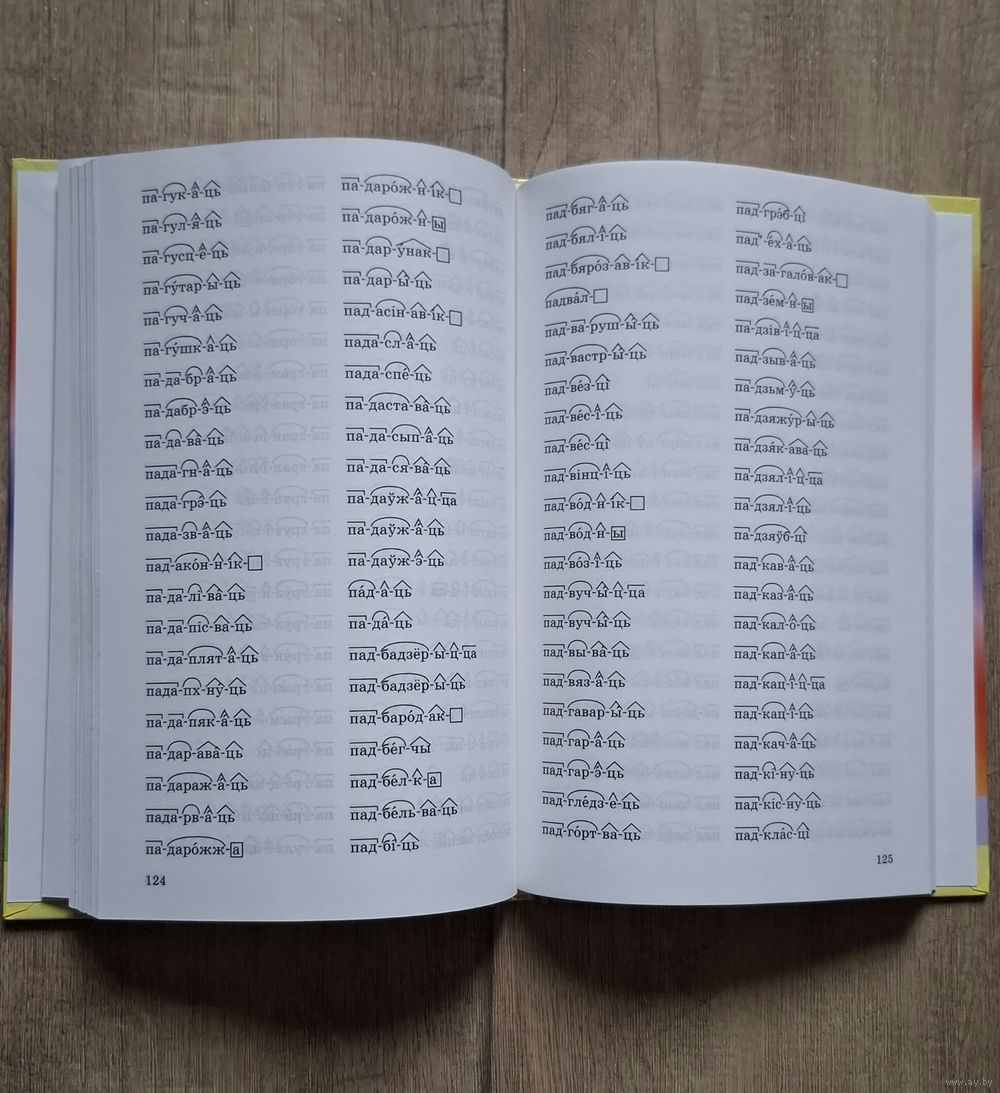 па-гук-а́-ць
па-гул-я́-ць
па-гусц-е́-ць
па-гу́тар-ы-ць
па-гуч-а́-ць
па-гу́шк-а-ць
па-да-бр-а́-ць
па-дабр-э́-ць
па-да-ва́-ць
пада-гн-а́-ць
пада-грэ́-ць
пада-зв-а́-ць
пад-ако́н-н-ік-
па-да-лі-ва́-ць
па-да-піс-ва́-ць
па-да-плят-а́-ць
пада-пх-ну́-ць
па-да-пяк-а́-ць
па-дар-ава́-ць
па-дараж-а́-ць
пада-рв-а́-ць
па-даро́жж-а
124
па-даро́ж-н-ік-
па-даро́ж-н-ы
па-дар-у́нак-
па-дар-ы́-ць
пад-асі́н-ав-ік-
пада-сл-а́-ць
пада-спе́-ць
па-даста-ва́-ць
па-да-сып-а́-ць
па-да-ся-ва́-ць
па-даўж-а́-ц-ца
па-даўж-а́-ць
па-даўж-э́-ць
па́д-а-ць
па-да́-ць
пад-бадзёр-ы-ц-ца
пад-бадзёр-ы-ць
пад-баро́д-ак-
пад-бе́г-чы
пад-бе́л-к-а
пад-бе́ль-ва-ць
пад-бі́-ць
пад-бяг-а́-ць
пад-бял-і́-ць
пад-бяро́з-ав-ік-
падва́л-
пад-ва-руш-ы́-ць
пад-вастр-ы́-ць
пад-ве́з-ці
пад-ве́с-і-ць
пад-ве́с-ці
пад-вінц-і́-ць
пад-во́д-н-ік-
пад-во́д-н-ы
пад-во́з-і-ць
пад-вуч-ы́-ц-ца
пад-вуч-ы́-ць
пад-вы-ва́-ць
пад-вяз-а́-ць
пад-гавар-ы́-ць
пад-гар-а́-ць
пад-гар-э́-ць
пад-гле́дз-е-ць
пад-го́рт-ва-ць
пад-грэ́б-ці
пад'-е́х-а-ць
пад-за-гало́в-ак-
пад-зе́м-н-ы
па-дзів-і́-ц-ца
пад-зыв-а́-ць
па-дзьм-у́-ць
па-дзяжу́р-ы-ць
па-дзя́к-ава-ць
па-дзял-і́-ц-ца
па-дзял-і́-ць
па-дзяўб-ці́
пад-кав-а́-ць
пад-каз-а́-ць
пад-кал-о́-ць
пад-кап-а́-ць
пад-кац-і́-ц-ца
пад-кац-і́-ць
пад-кач-а́-ць
пад-кі́-ну-ць
пад-кіс-ну́-ць
пад-кла́с-ці
125
www.ay.by